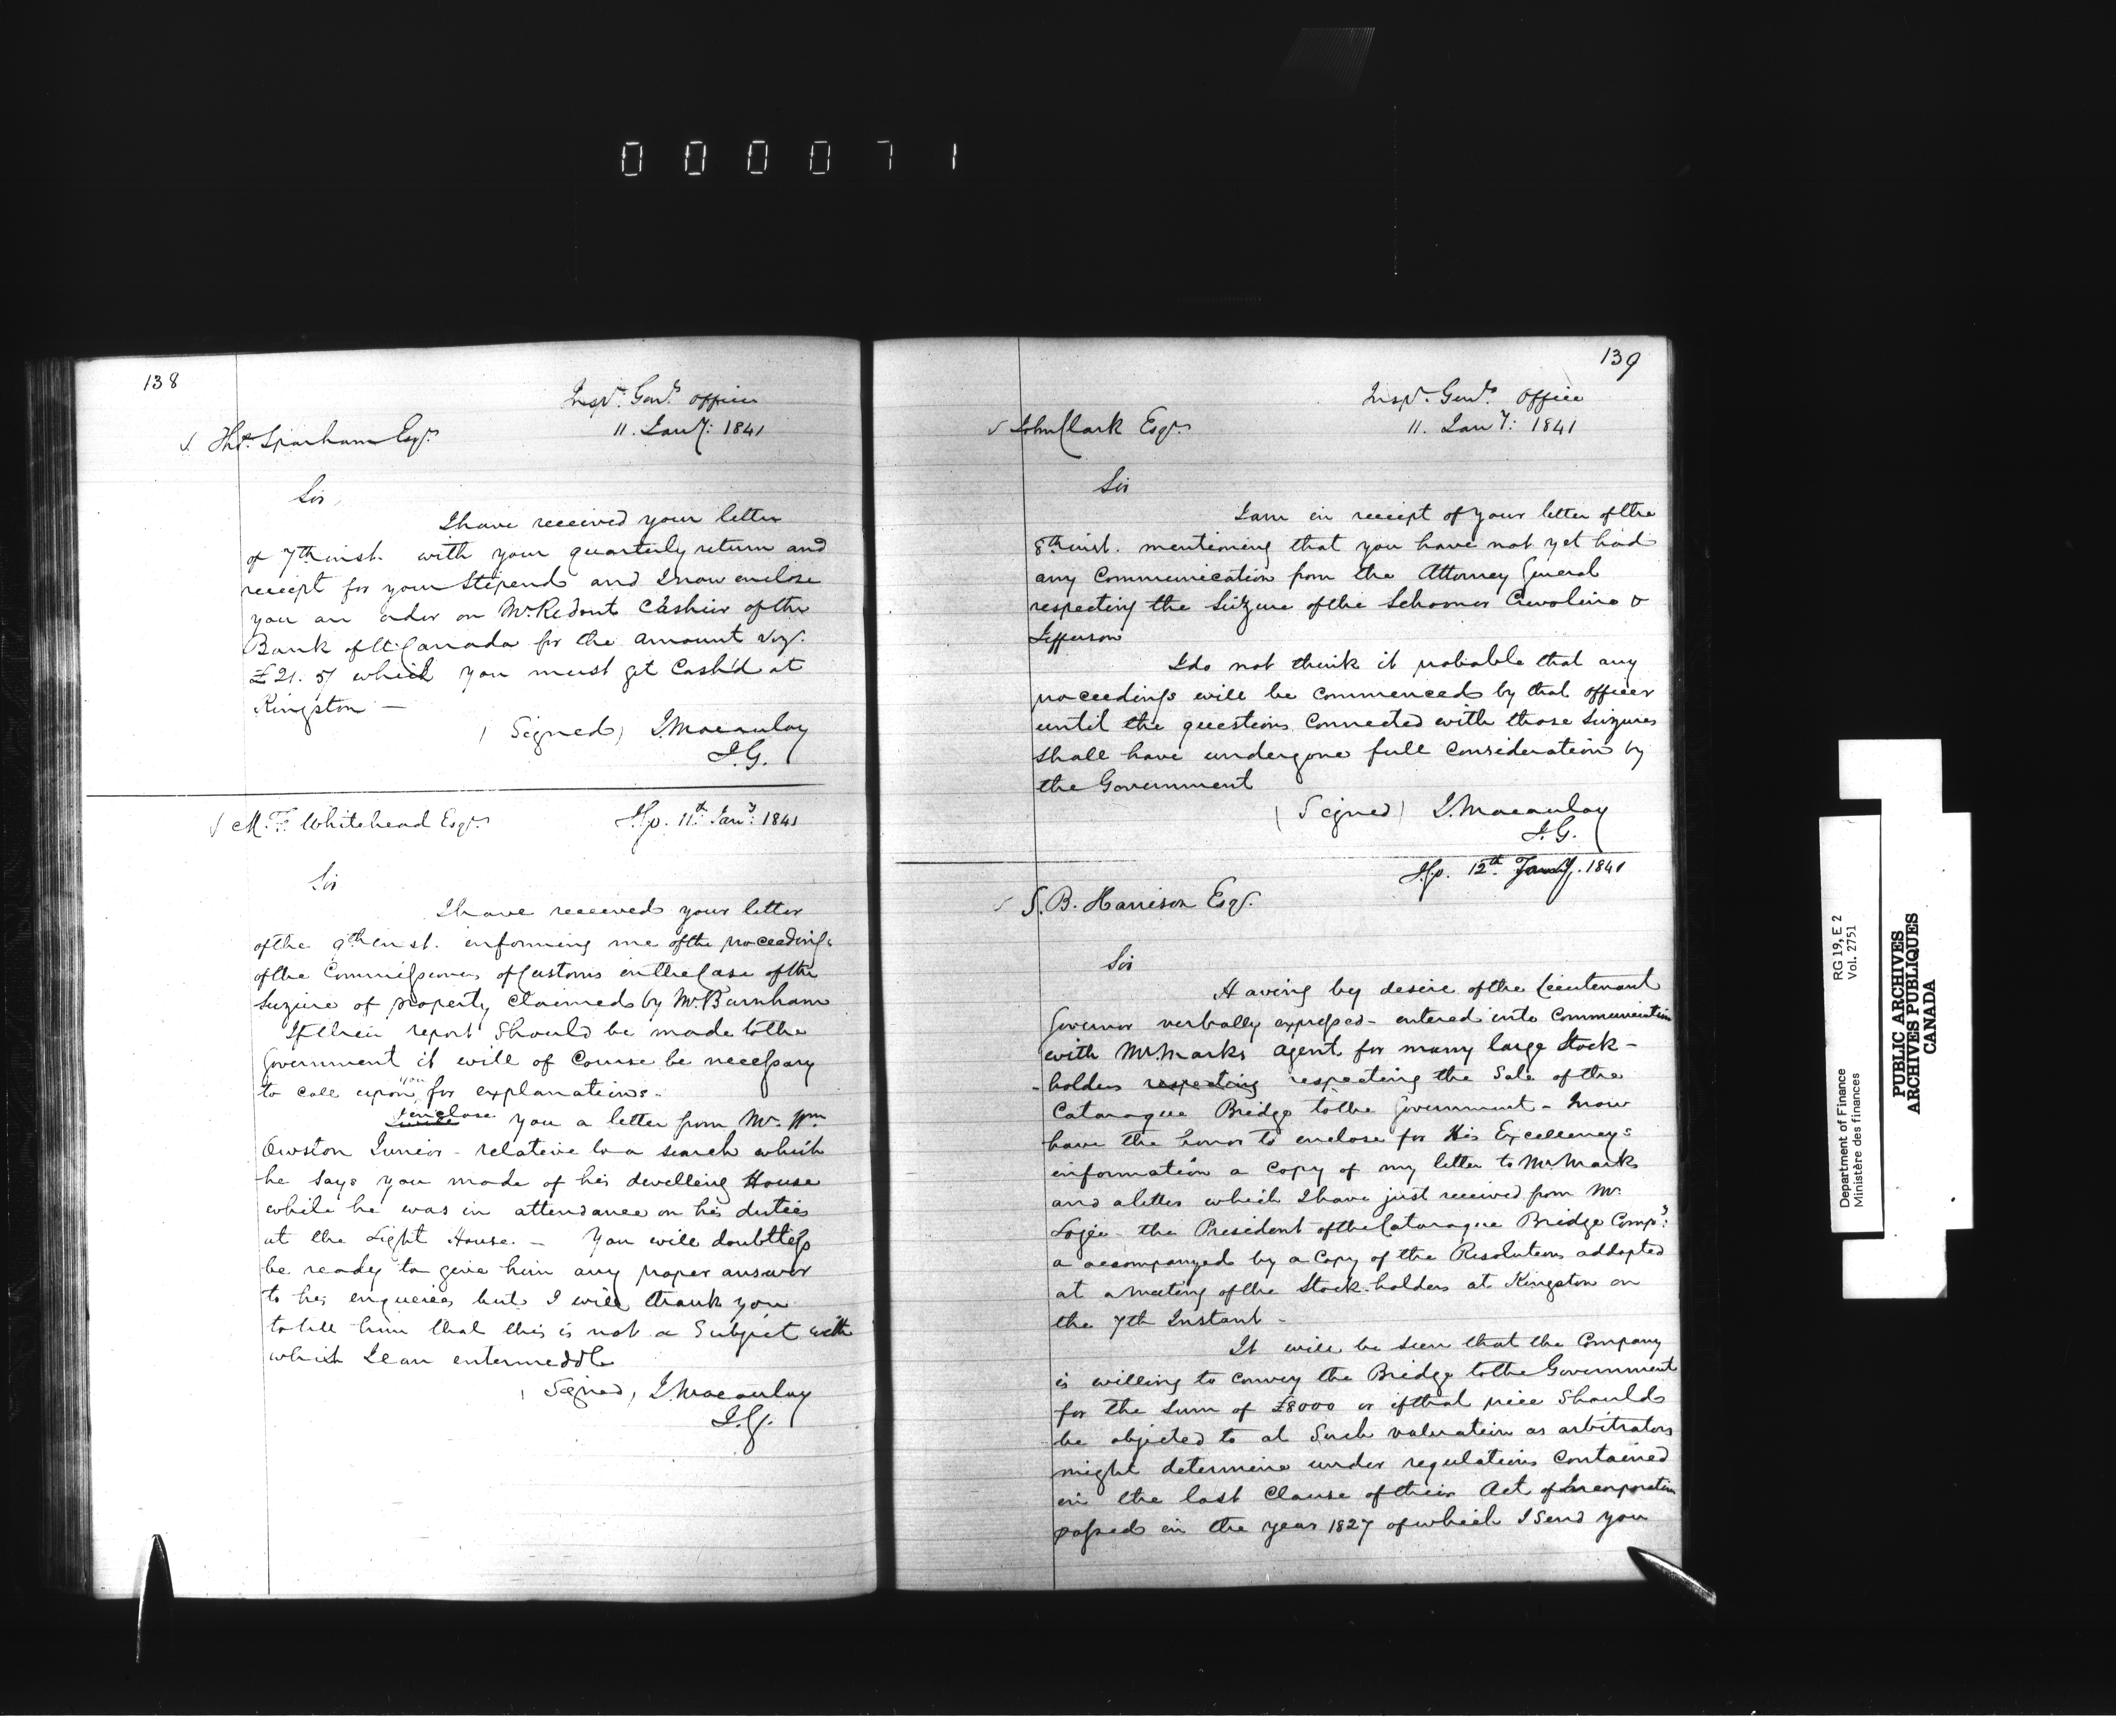 000071
138
Inspr. Genls. office
11. Jany: 1841
Thos. Sparham Esqr.
Sir,
I have received your letter
of 7th inst. with your quarterly return and
receipt for your Stipend and I now enclose
you an order on Mr. Ridout Cashier of the
Bank of U. Canada for the amount viz.
£21. 5/ which you must get Cash'd at
Kingston —
(Signed) J. Macaulay
I. G.
M. F. Whitehead Esqr.
I.G.O. 11th Jany: 1841
Sir
I have received your letter
of the 9th inst. informing me of the proceedings
of the Commissioners of Customs in the Case of the
Seizure of property claimed by Mr. Burnham
If their report Should be made to the
Government it will of Course be necessary
to call upon you for explanations.
I enclose you a letter from Mr. Wm.
Owston Junior - relative to a search which
he says you made of his dwelling House
while he was in attendance on his duties
at the Light House. — You will doubtless
be ready to give him any proper answer
to his enqueries but I will thank you
to tell him that this is not a Subject with
which I can entermeddle
(Signed) J. Macaulay
I. G.
139
Inspr. Genls. Office
11. Jany: 1841
John Clark Esqr.
Sir
I am in receipt of your letter of the
8th inst. mentioning that you have not yet had
any Communication from the Attorney General
respecting the Seizure of the Schooner Caroline &
Jefferson
I do not think it probable that any
proceedings will be commenced by that officer
until the questions Connected with those Seizures
shall have undergone full Consideration by
the Government
(Signed) J. Macaulay
I. G.
I.G.O. 12th Jany. 1841
S. B. Harrison Esqr.
Sir
Having by desire of the Lieutenant
Governor verbally expressed - entered into Communication
with Mr. Marks Agent for many large Stock-
-holders respecting respecting the Sale of the
Cataraque Bridge to the Government - I now
have the honor to enclose for His Excellency's
information a Copy of my letter to Mr. Marks
and a letter which I have just received from Mr.
Logie the President of the Cataraque Bridge Compy:
a accompanyed by a Copy of the Resolutions addopted
at a meeting of the Stock-holders at Kingston on
the 7th Instant -
It will be seen that the Company
is willing to convey the Bridge to the Government
for the sum of £8000 or if that price Should
be objected to at Such valuation as arbitrators
might determine under regulations Contained
in the last Clause of their Act of Incorporation
passed in the year 1827 of which I send you
Department of Finance
Ministère des finances
RG 19, E 2
Vol. 2751
PUBLIC ARCHIVES
ARCHIVES PUBLIQUES
CANADA